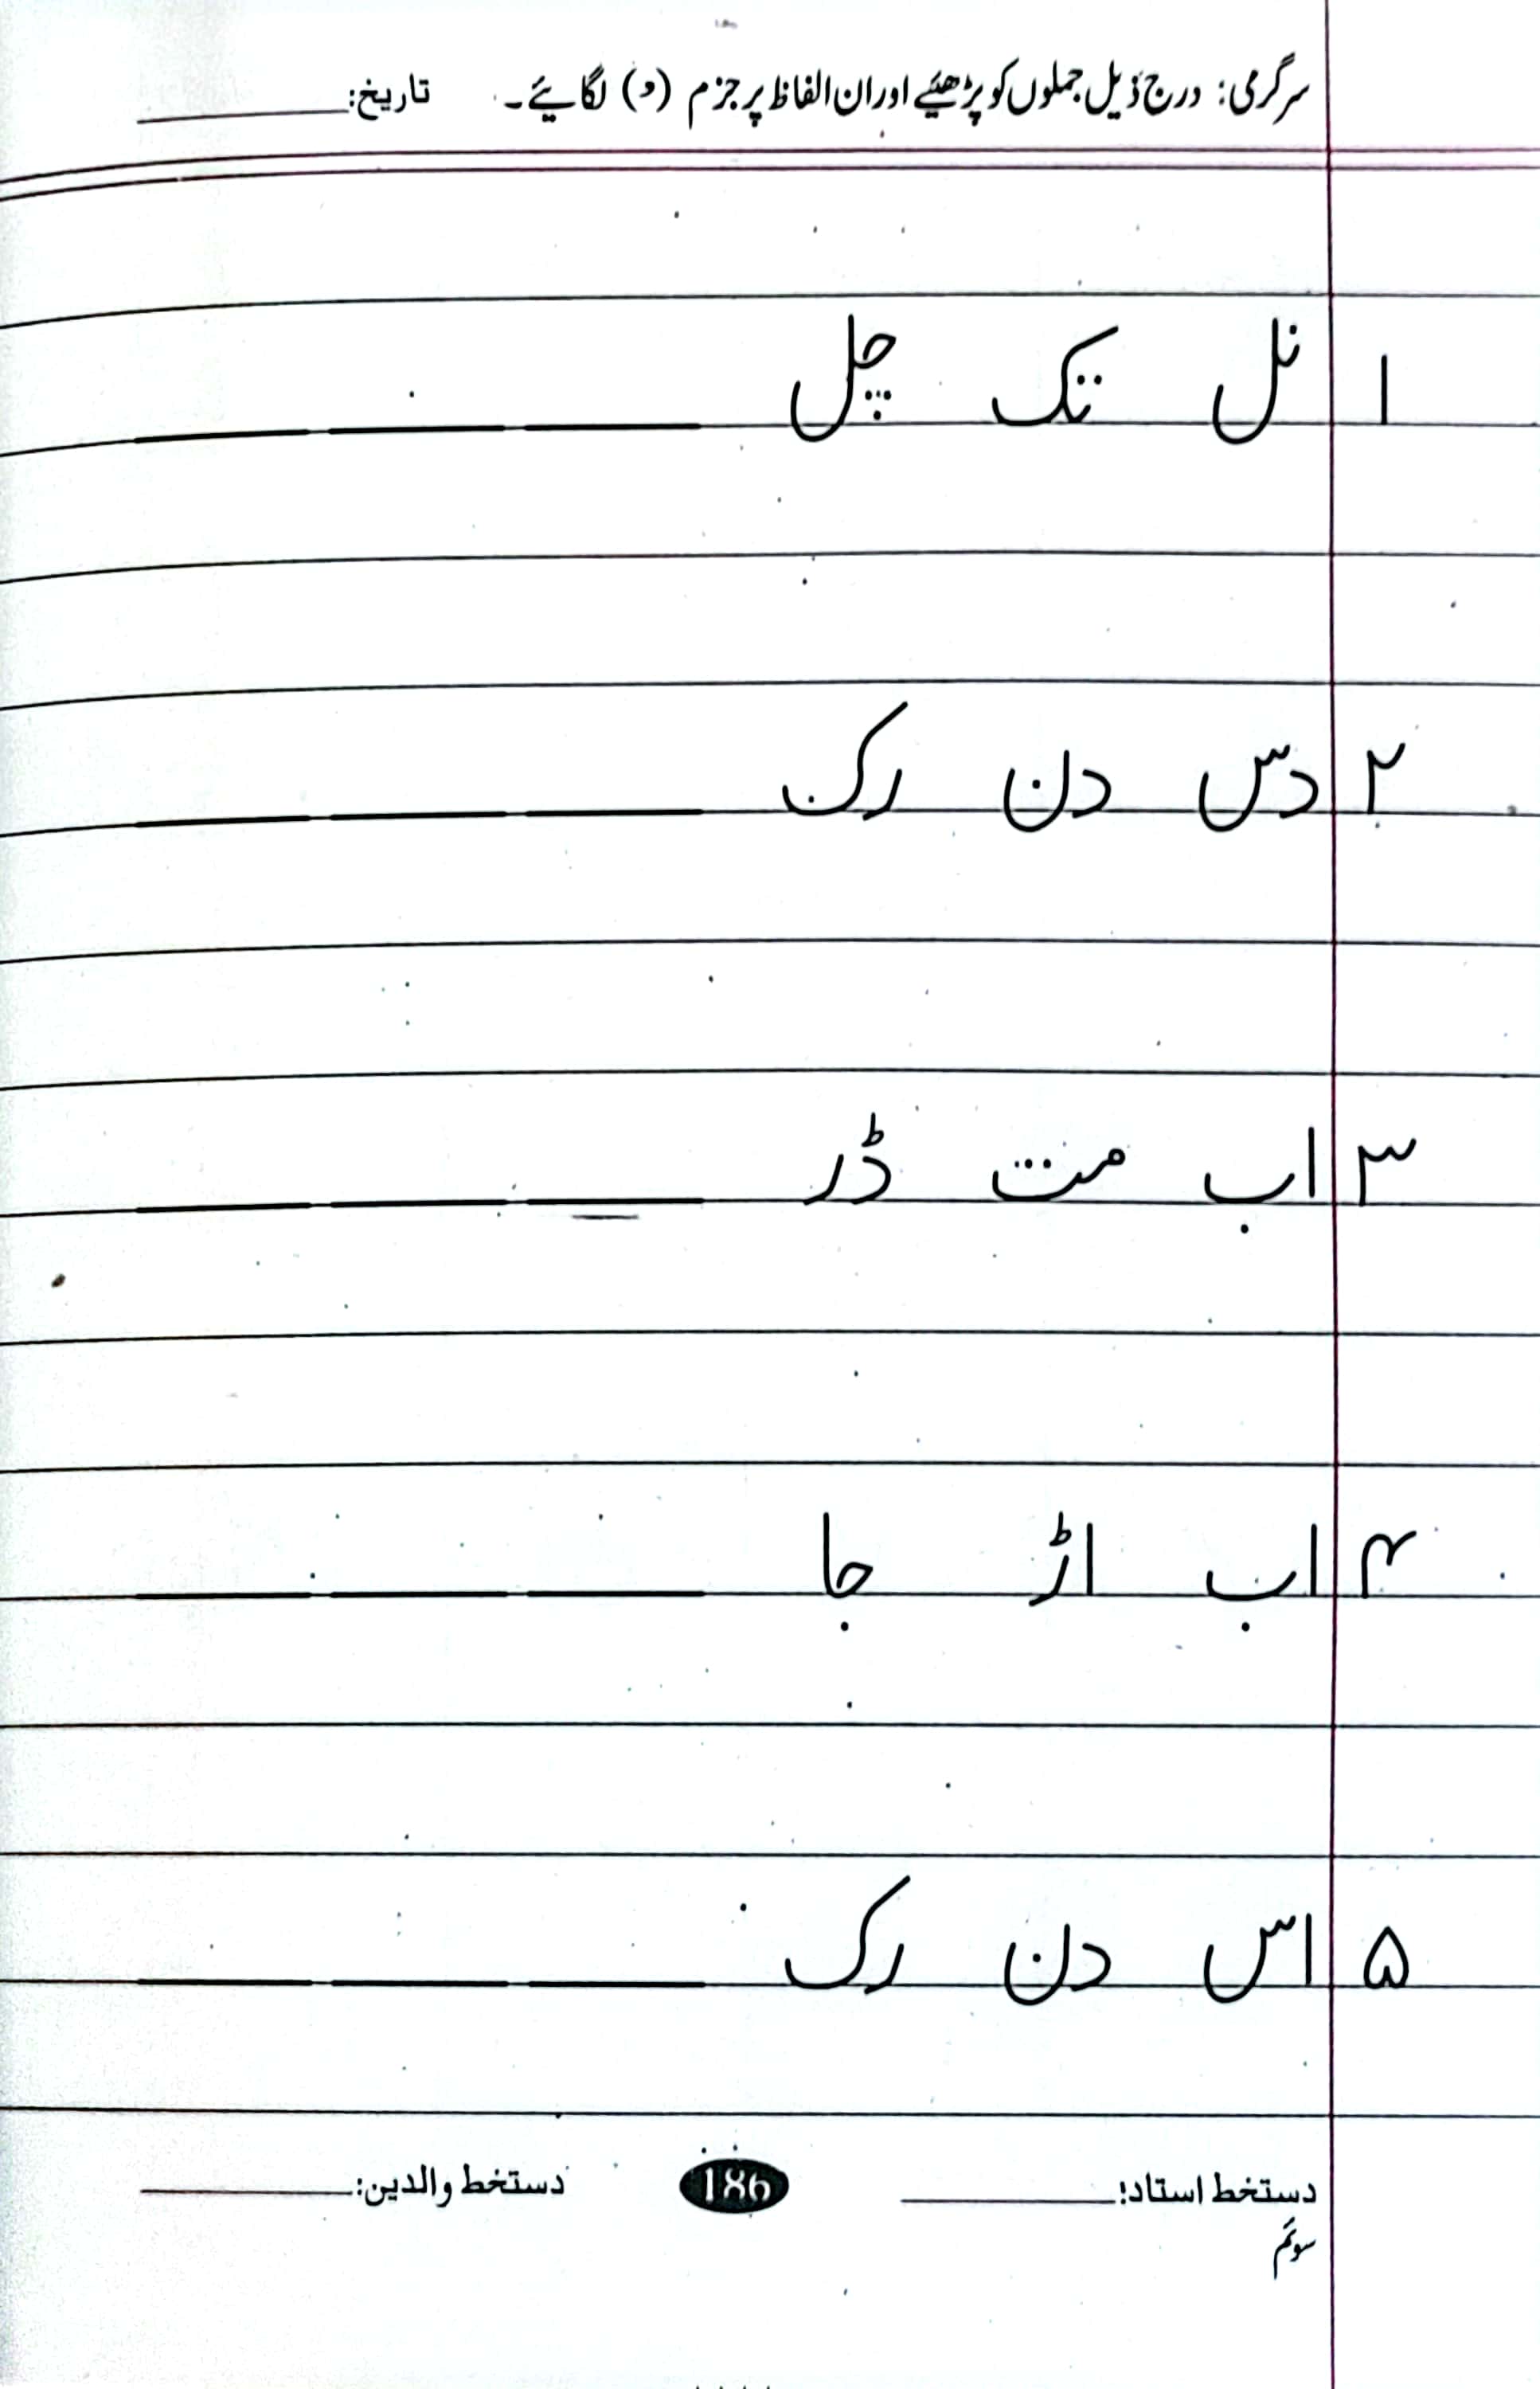 سرگرمی: درج ذیل جملوں کو پڑھیئے اور ان الفاظ پر جزم (د) لگائیے۔ تاریخ:
۱ نل تک چل
۲ دس دن رک
۳ اب مت ڈر
۴ اب اڑ جا
۵ اس دن رک
دستخط استاد: 186 دستخط والدین:
سوئم